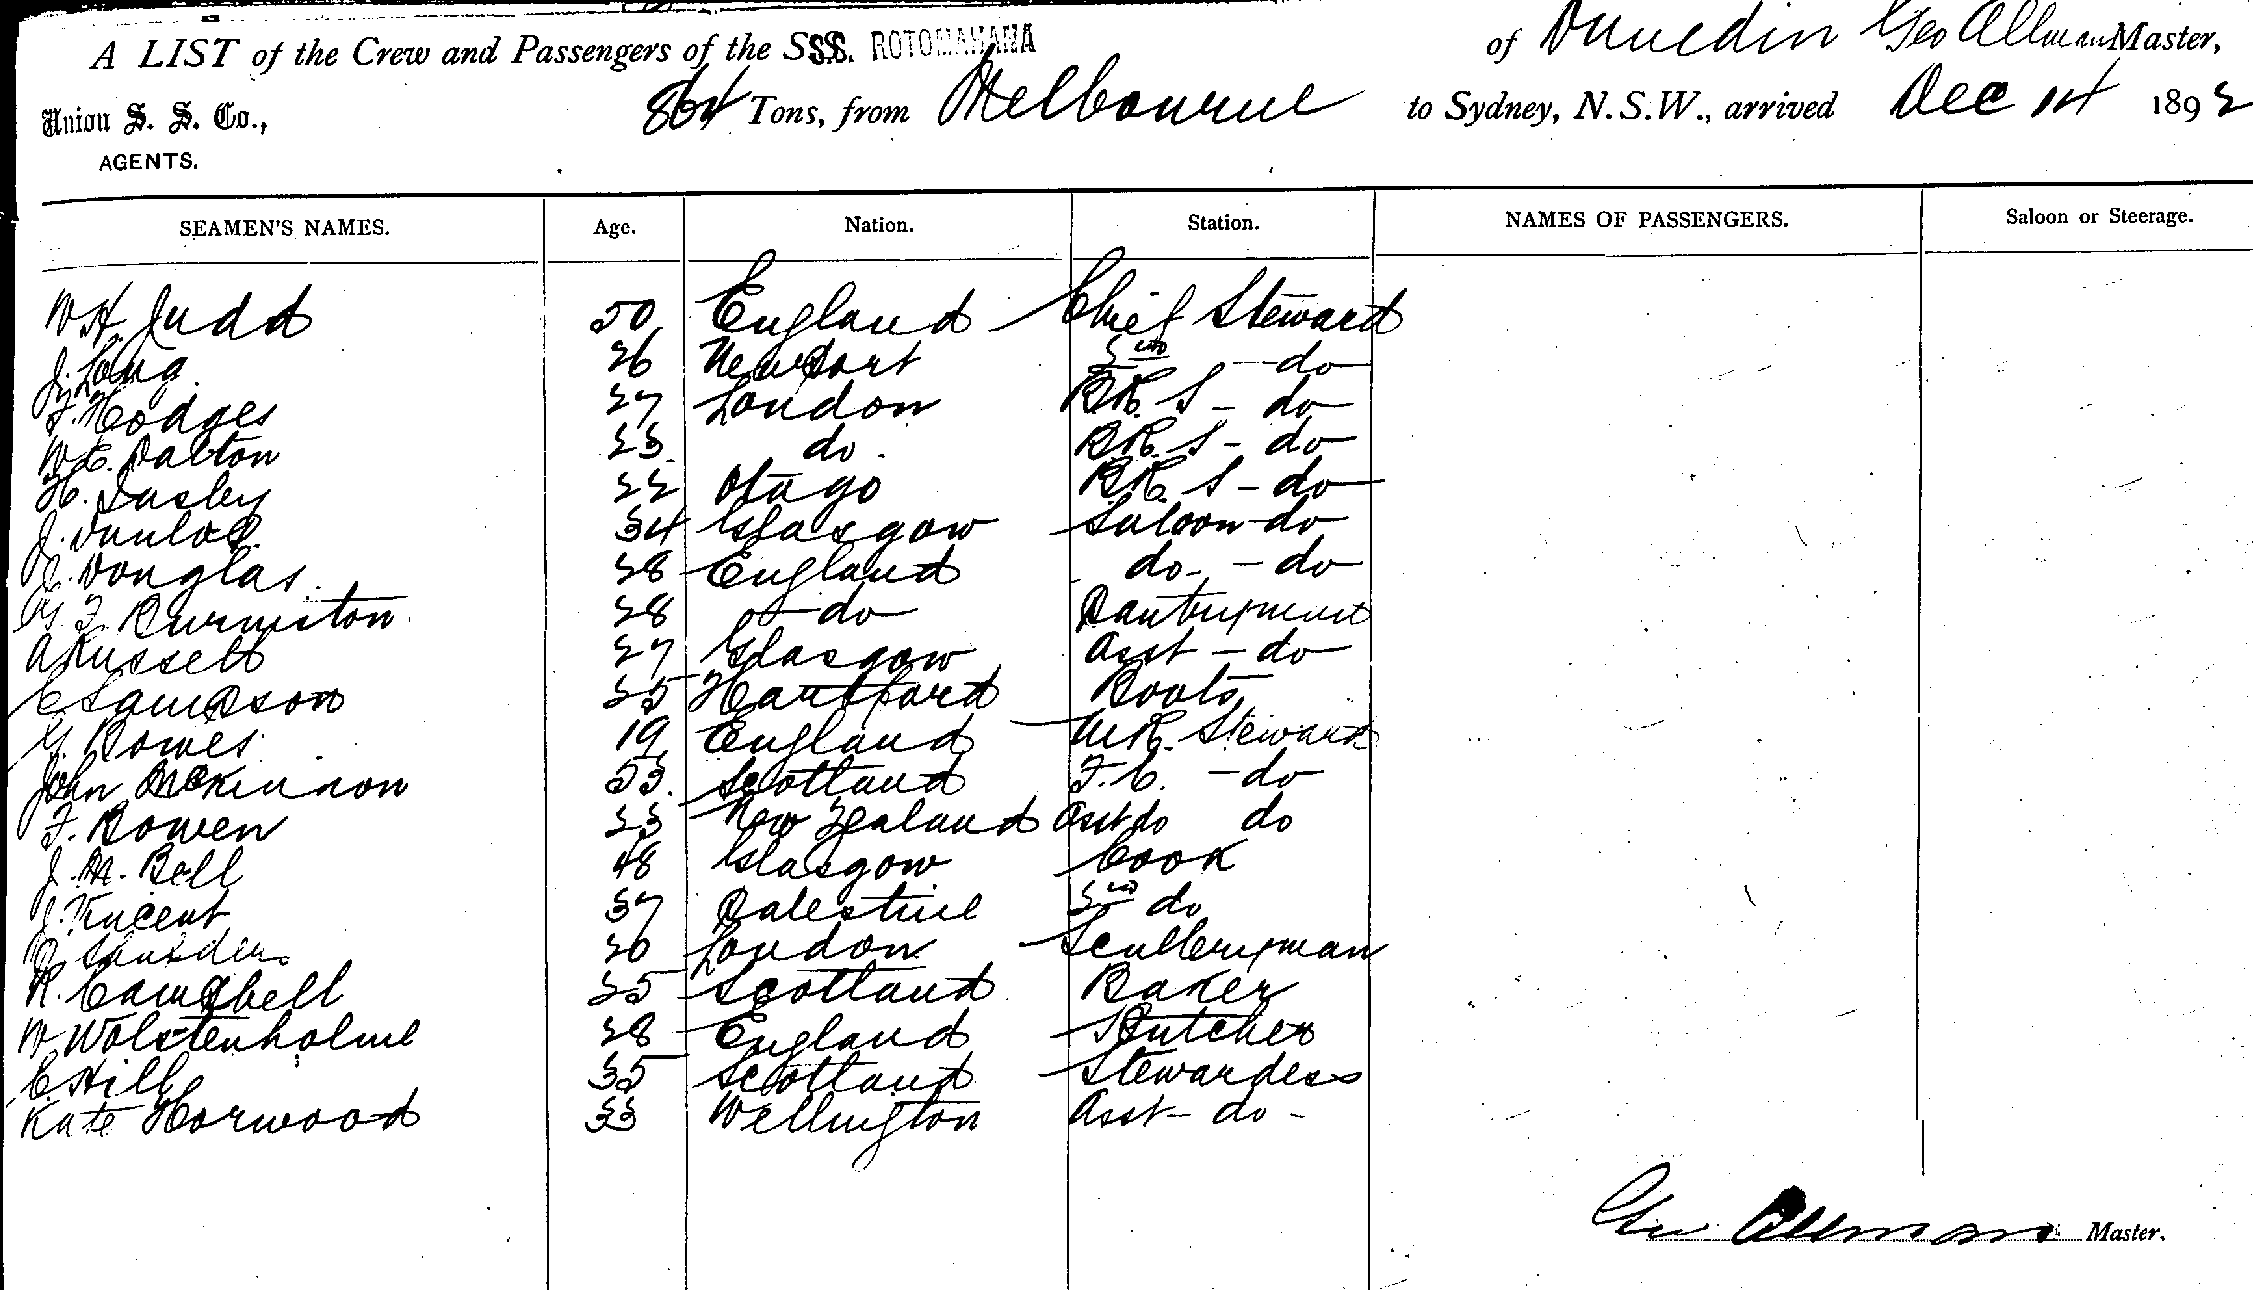 A LIST of the Crew and Passengers of the S.S. ROTOMAHANA of Dunedin Geo Allman Master,
Union S. S. Co., 864 Tons, from Melbourne to Sydney, N.S.W., arrived Dec 14 1892
AGENTS.
SEAMEN'S NAMES. Age. Nation. Station. NAMES OF PASSENGERS. Saloon or Steerage.
W H. Judd 50 England Chief Steward
J. Long 26 Newport 2nd do
F. Hodges 27 London B.R. S - do
W. E. Dalton 23 do. B.R. S - do
H. 22 Otago B.R. S - do
J. Dunlop 34 Glasgow Saloon do
Douglas 28 England do - do
G. F. Burmiston 28 do Pantryman
A Russell 27 Glasgow Asst - do
C Sampson 25 Hartford Boots
G. Bowes 19 England M.R. Steward
John McKinnon 53. Scotland F. C. - do
F. Bowen 23 New Zealand Asst do do
J. M. Bell 48 Glasgow Cook
J. Vincent 37 Palestine 2nd do
Saunders 20 London Sculleryman
R. Campbell 25 Scotland Baker
W Wolstenholme 28 England Butcher
C. Hill 35 Scotland Stewardess
Kate Horwood 33 Wellington Asst - do -
Geo Allman Master.